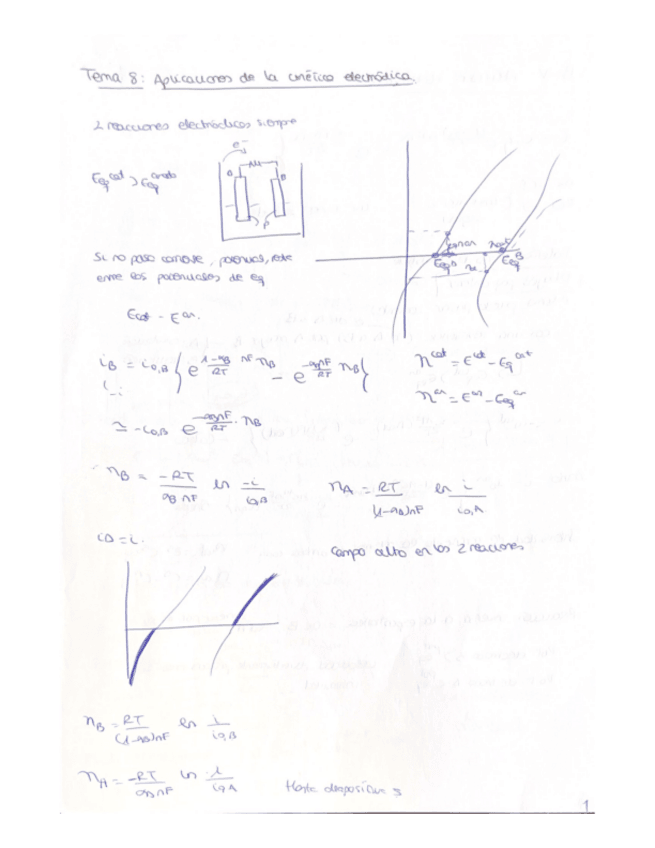 Tema 8: Aplicaciones de la cinética electródica
2 reacciones electródicas siempre
e⁻
Eeq^cat > Eeq^anodo
A B
P
Si no pasa corriente, potencial, este
entre los potenciales de eq
Ecat - Ean.
η^cat = E^cat - Eeq^cat
η^an = E^an - Eeq^an
iB = i0,B { e^(1-αB/RT nF ηB) - e^(-αBnF/RT ηB) }
≃ -i0,B e^(-αBnF/RT · ηB)
ηB = -RT/αB nF ln -i/i0,B
ηA = RT/(1-αA)nF ln i/i0,A
Campo alto en las 2 reaciones
ηB = RT/(1-αB)nF ln i/i0,B
ηA = -RT/αB nF ln -i/i0,A
Hasta diapositiva 3
1